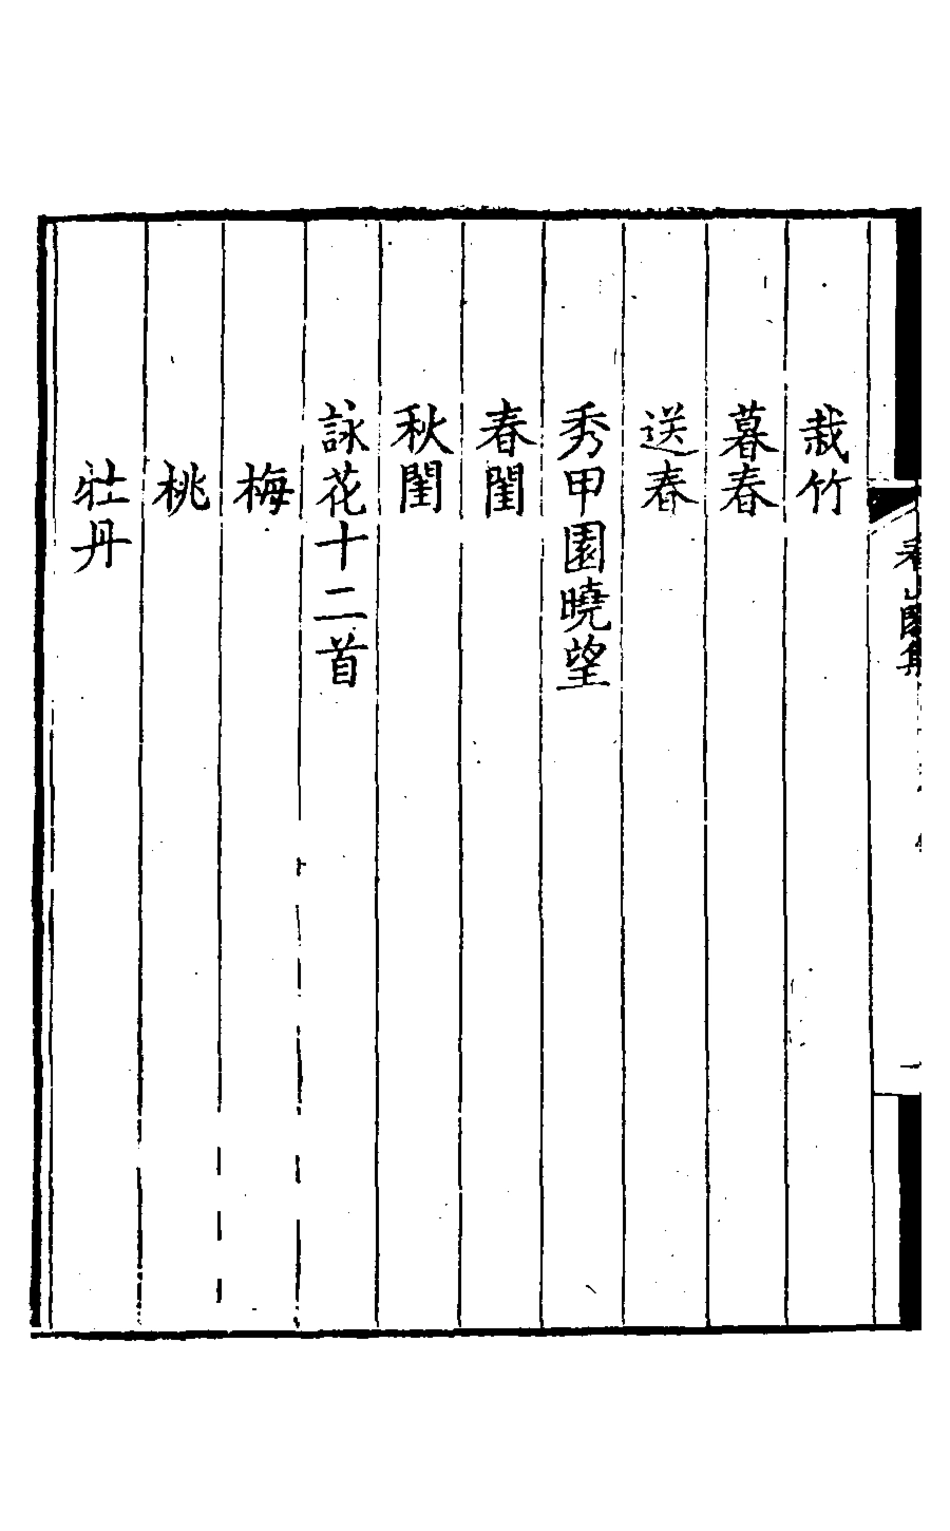 栽竹
暮春
送春
秀甲園曉望
春閨
秋閨
詠花十二首
梅
桃
牡丹